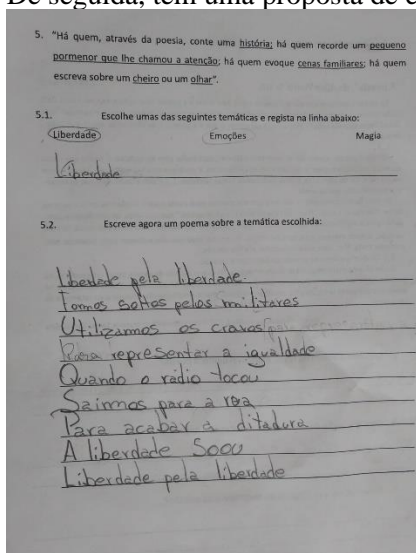 5. "Há quem, através da poesia, conte uma história; há quem recorde um pequeno
pormenor que lhe chamou a atenção; há quem evoque cenas familiares; há quem
escreva sobre um cheiro ou um olhar".
5.1. Escolhe umas das seguintes temáticas e regista na linha abaixo:
Liberdade Emoções Magia
Liberdade
5.2. Escreve agora um poema sobre a temática escolhida:
liberdade pela liberdade.
Fomos soltos pelos militares
Utilizamos os cravos
Para representar a igualdade
Quando o rádio tocou
Saimos para a rua
Para acabar a ditadura
A liberdade Soou
Liberdade pela liberdade